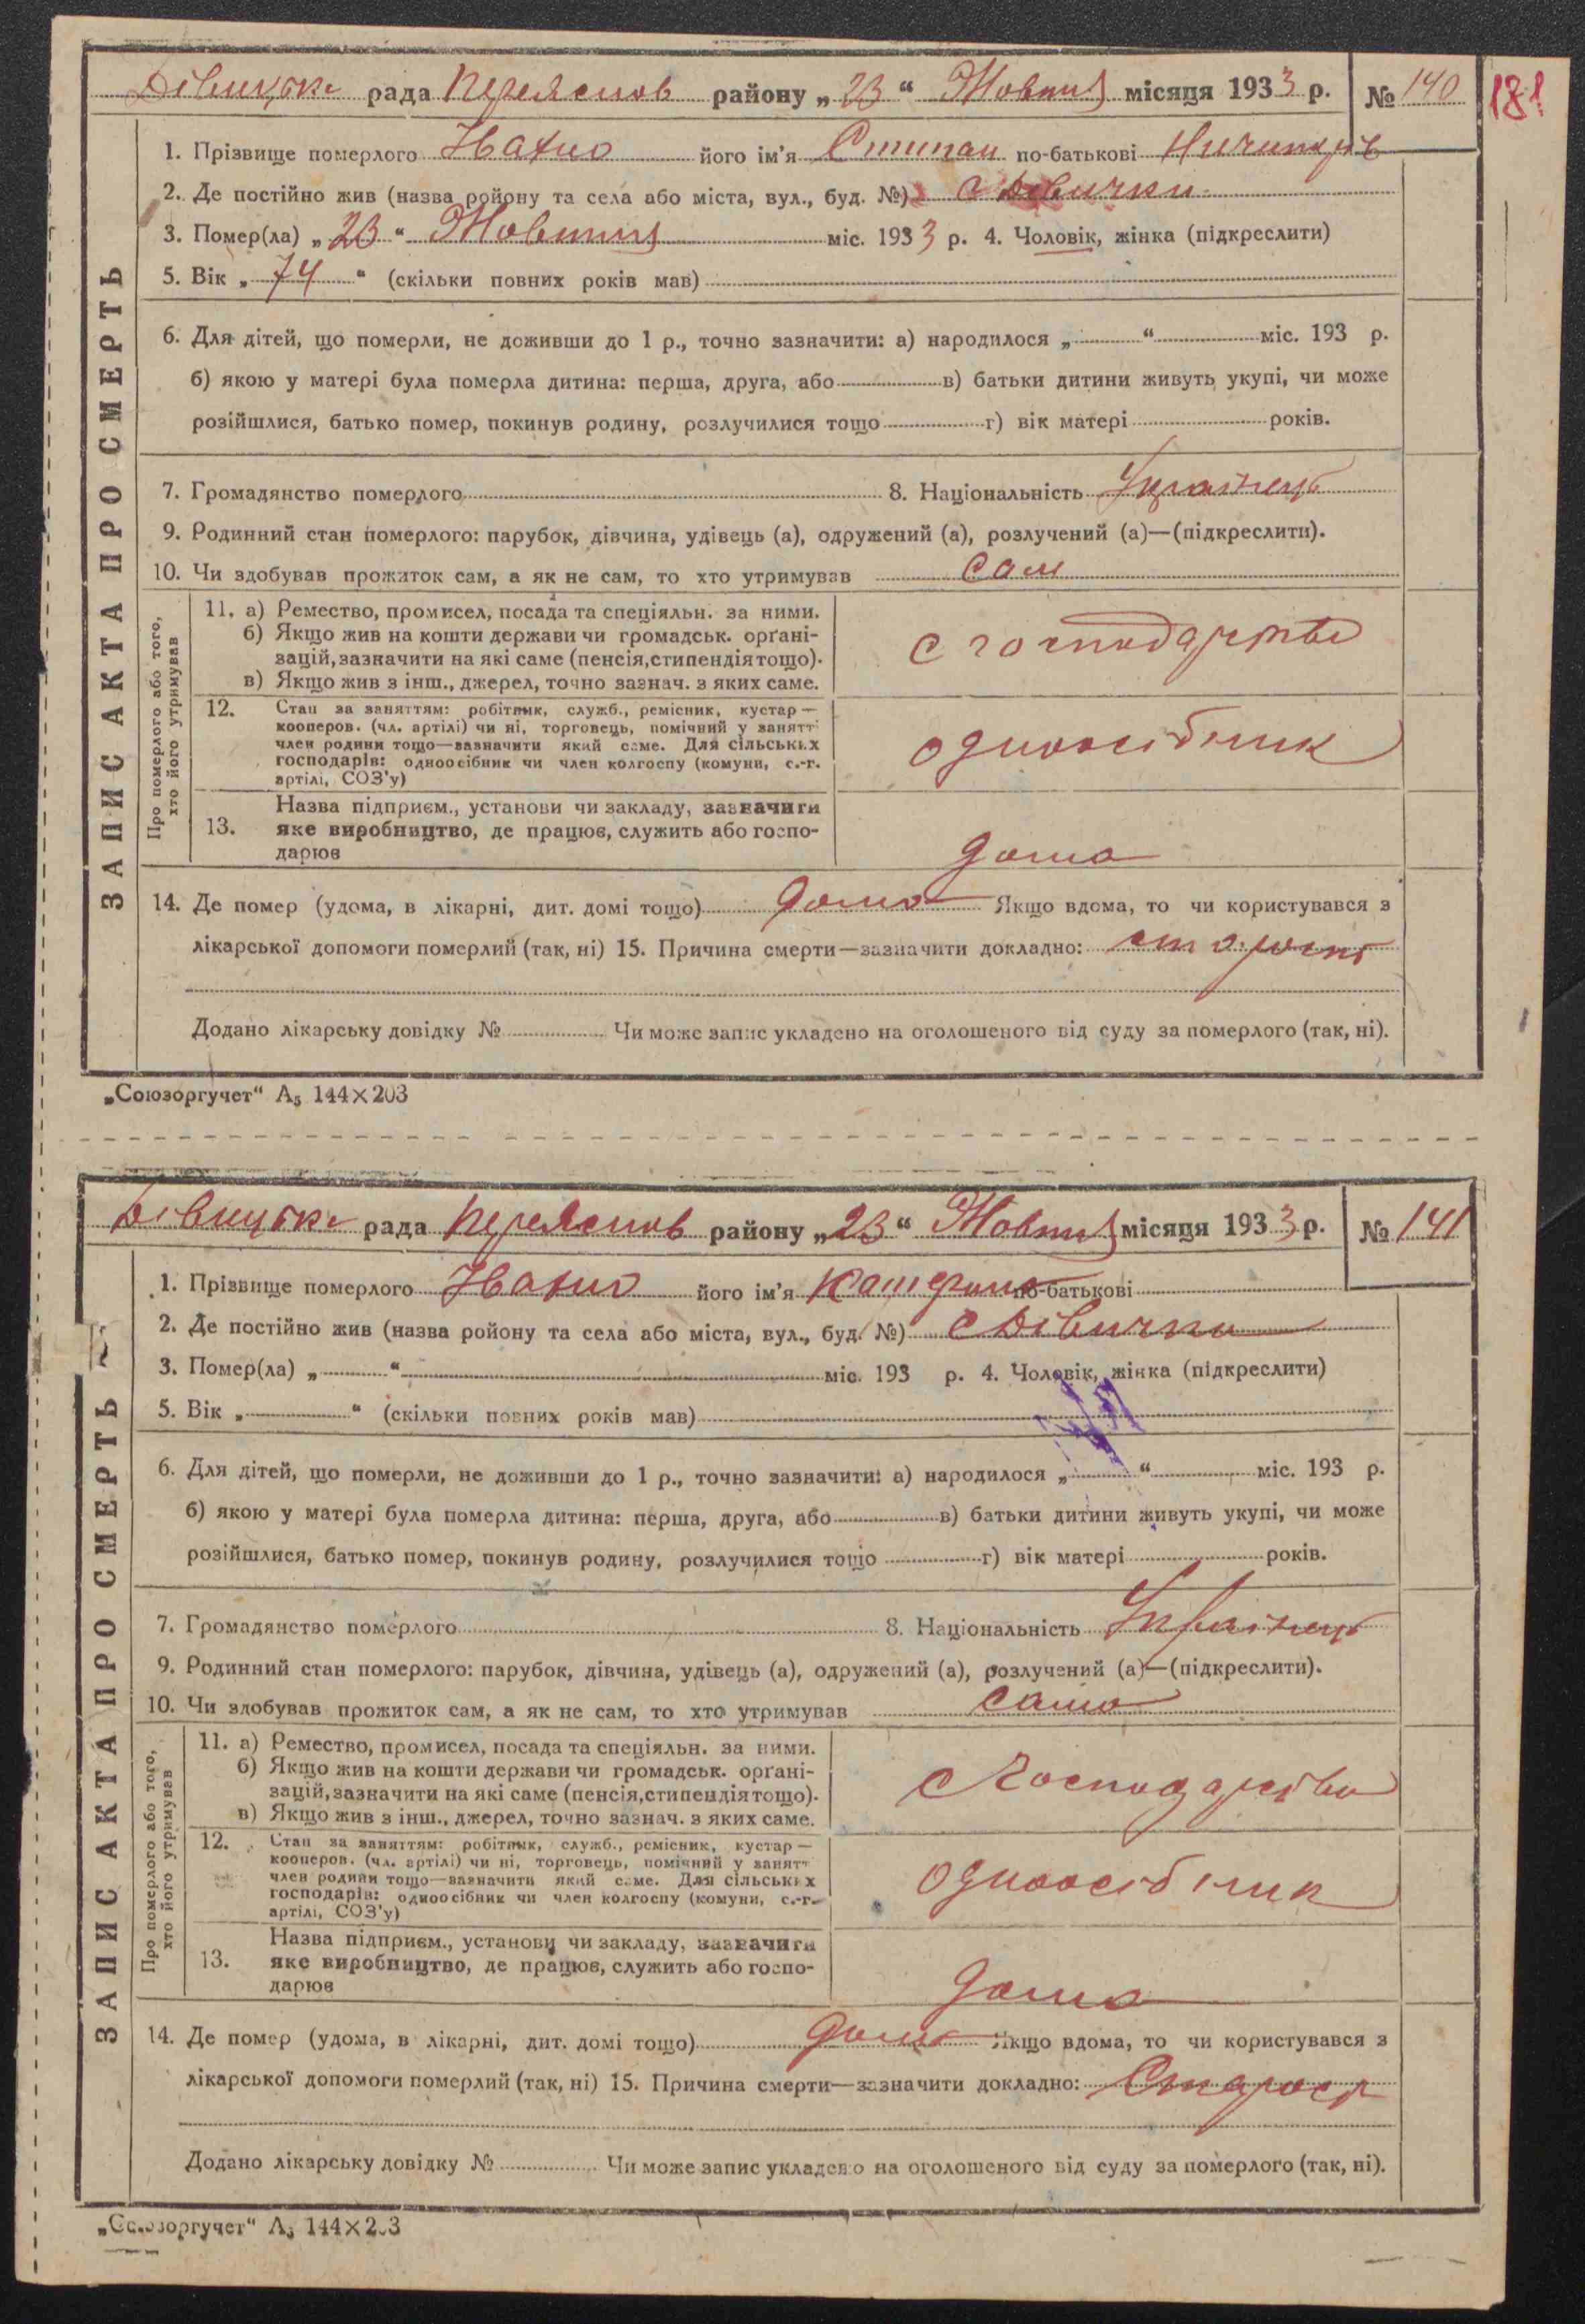 Дівицька рада Переяслов району „23“ Жовтня місяця 1933 р. № 140
181
1. Прізвище померлого Ивахно його ім’я Степан по-батькові Ничипорів
2. Де постійно жив (назва ройону та села або міста, вул., буд. №) с Дівички
3. Помер(ла) „23“ Жовтня міс. 1933 р. 4. Чоловік, жінка (підкреслити)
5. Вік „74“ (скільки повних років мав)
6. Для дітей, що померли, не доживши до 1 р., точно зазначити: а) народилося „ “ міс. 193 р.
б) якою у матері була померла дитина: перша, друга, або в) батьки дитини живуть укупі, чи може
розійшлися, батько помер, покинув родину, розлучилися тощо г) вік матері років.
7. Громадянство померлого 8. Національність Українець
9. Родинний стан померлого: парубок, дівчина, удівець (а), одружений (а), розлучений (а)—(підкреслити).
10. Чи здобував прожиток сам, а як не сам, то хто утримував сам
ЗАПИС АКТА ПРО СМЕРТЬ
Про померлого або того,
хто його утримував
11. а) Ремество, промисел, посада та спеціяльн. за ними.
б) Якщо жив на кошти держави чи громадськ. орґані-
зацій, зазначити на які саме (пенсія, стипендія тощо).
в) Якщо жив з інш., джерел, точно зазнач. з яких саме.
с господарства
12. Стан за заняттям: робітник, служб., ремісник, кустар—
кооперов. (чл. артілі) чи ні, торговець, помічний у занятт
член родини тощо—зазначити який саме. Для сільських
господарів: одноосібник чи член колгоспу (комуни, с.-г.
артілі, СОЗ’у)
одноосібник
Назва підприєм., установи чи закладу, зазначити
13. яке виробництво, де працює, служить або госпо-
дарює
дома
14. Де помер (удома, в лікарні, дит. домі тощо) дома Якщо вдома, то чи користувався з
лікарської допомоги померлий (так, ні) 15. Причина смерти—зазначити докладно: старость
Додано лікарську довідку № Чи може запис укладено на оголошеного від суду за померлого (так, ні).
„Союзоргучет“ А₅ 144×203
Дівицька рада Переяслов району „23“ Жовтня місяця 1933 р. № 141
1. Прізвище померлого Ивахно його ім’я Катерина по-батькові
2. Де постійно жив (назва ройону та села або міста, вул., буд. №) с Дівички
3. Помер(ла) „ “ міс. 193 р. 4. Чоловік, жінка (підкреслити)
5. Вік „ “ (скільки повних років мав)
6. Для дітей, що померли, не доживши до 1 р., точно зазначити: а) народилося „ “ міс. 193 р.
б) якою у матері була померла дитина: перша, друга, або в) батьки дитини живуть укупі, чи може
розійшлися, батько помер, покинув родину, розлучилися тощо г) вік матері років.
7. Громадянство померлого 8. Національність Українець
9. Родинний стан померлого: парубок, дівчина, удівець (а), одружений (а), розлучений (а)—(підкреслити).
10. Чи здобував прожиток сам, а як не сам, то хто утримував сама
ЗАПИС АКТА ПРО СМЕРТЬ
Про померлого або того,
хто його утримував
11. а) Ремество, промисел, посада та спеціяльн. за ними.
б) Якщо жив на кошти держави чи громадськ. орґані-
зацій, зазначити на які саме (пенсія, стипендія тощо).
в) Якщо жив з інш., джерел, точно зазнач. з яких саме.
с господарства
12. Стан за заняттям: робітник, служб., ремісник, кустар—
кооперов. (чл. артілі) чи ні, торговець, помічний у занятт
член родини тощо—зазначити який саме. Для сільських
господарів: одноосібник чи член колгоспу (комуни, с.-г.
артілі, СОЗ’у)
одноосібник
Назва підприєм., установи чи закладу, зазначити
13. яке виробництво, де працює, служить або госпо-
дарює
дома
14. Де помер (удома, в лікарні, дит. домі тощо) дома Якщо вдома, то чи користувався з
лікарської допомоги померлий (так, ні) 15. Причина смерти—зазначити докладно: Старост
Додано лікарську довідку № Чи може запис укладено на оголошеного від суду за померлого (так, ні).
„Союзоргучет“ А₅ 144×203